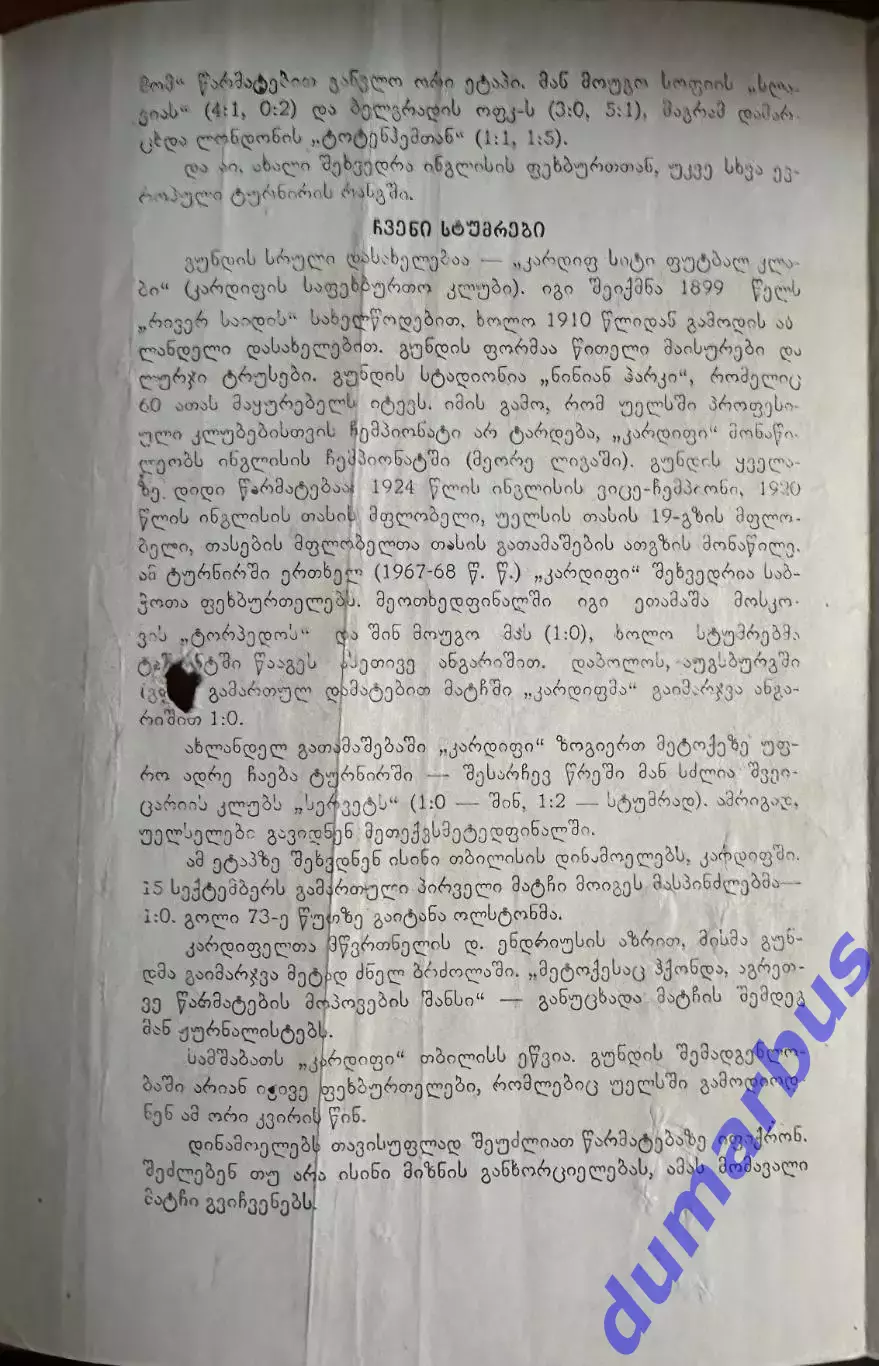 წარმატებით განვლო ორი ეტაპი. მან მოუგო სოფიის „სლა-
ვიას“ (4:1, 0:2) და ბელგრადის ოფკ-ს (3:0, 5:1), მაგრამ დამარ-
ცხდა ლონდონის „ტოტენჰემთან“ (1:1, 1:5).
და აი, ახალი შეხვედრა ინგლისის ფეხბურთთან, უკვე სხვა ევ-
როპული ტურნირის რანგში.
ჩვენი სტუმრები
გუნდის სრული დასახელებაა — „კარდიფ სიტი ფუტბალ კლა-
ბი“ (კარდიფის საფეხბურთო კლუბი). იგი შეიქმნა 1899 წელს
„რივერ საიდის“ სახელწოდებით, ხოლო 1910 წლიდან გამოდის ახ
ლანდელი დასახელებით. გუნდის ფორმაა წითელი მაისურები და
ლურჯი ტრუსები. გუნდის სტადიონია „ნინიან პარკი“, რომელიც
60 ათას მაყურებელს იტევს. იმის გამო, რომ უელსში პროფესი-
ული კლუბებისთვის ჩემპიონატი არ ტარდება, „კარდიფი“ მონაწი-
ლეობს ინგლისის ჩემპიონატში (მეორე ლიგაში). გუნდის ყველა-
ზე დიდი წარმატებაა: 1924 წლის ინგლისის ვიცე-ჩემპიონი, 1920
წლის ინგლისის თასის მფლობელი, უელსის თასის 19-გზის მფლო-
ბელი, თასების მფლობელთა თასის გათამაშების ათგზის მონაწილე.
ამ ტურნირში ერთხელ (1967-68 წ. წ.) „კარდიფი“ შეხვედრია საბ-
ჭოთა ფეხბურთელებს. მეოთხედფინალში იგი ეთამაშა მოსკო-
ვის „ტორპედოს“ და შინ მოუგო მას (1:0), ხოლო სტუმრებმა
წააგეს ასეთივე ანგარიშით. დაბოლოს, აუგსბურგში
გამართულ დამატებით მატჩში „კარდიფმა“ გაიმარჯვა ანგა-
რიშით 1:0.
ახლანდელ გათამაშებაში „კარდიფი“ ზოგიერთ მეტოქეზე უფ-
რო ადრე ჩაება ტურნირში — შესარჩევ წრეში მან სძლია შვეი-
ცარიის კლუბს „სერვეტს“ (1:0 — შინ, 1:2 — სტუმრად). ამრიგად,
უელსელები გავიდნენ მეთექვსმეტედფინალში.
ამ ეტაპზე შეხვდნენ ისინი თბილისის დინამოელებს, კარდიფში.
15 სექტემბერს გამართული პირველი მატჩი მოიგეს მასპინძლებმა—
1:0. გოლი 73-ე წუთზე გაიტანა ოლსტონმა.
კარდიფელთა მწვრთნელის დ. ენდრიუსის აზრით, მისმა გუნ-
დმა გაიმარჯვა მეტად ძნელ ბრძოლაში. „მეტოქესაც ჰქონდა, აგრეთ-
ვე წარმატების მოპოვების შანსი“ — განუცხადა მატჩის შემდეგ
მან ჟურნალისტებს.
სამშაბათს „კარდიფი“ თბილისს ეწვია. გუნდის შემადგენლო-
ბაში არიან იგივე ფეხბურთელები, რომლებიც უელსში გამოდიოდ-
ნენ ამ ორი კვირის წინ.
დინამოელებს თავისუფლად შეუძლიათ წარმატებაზე იფიქრონ.
შეძლებენ თუ არა ისინი მიზნის განხორციელებას, ამას მომავალი
მატჩი გვიჩვენებს.
dumarbus